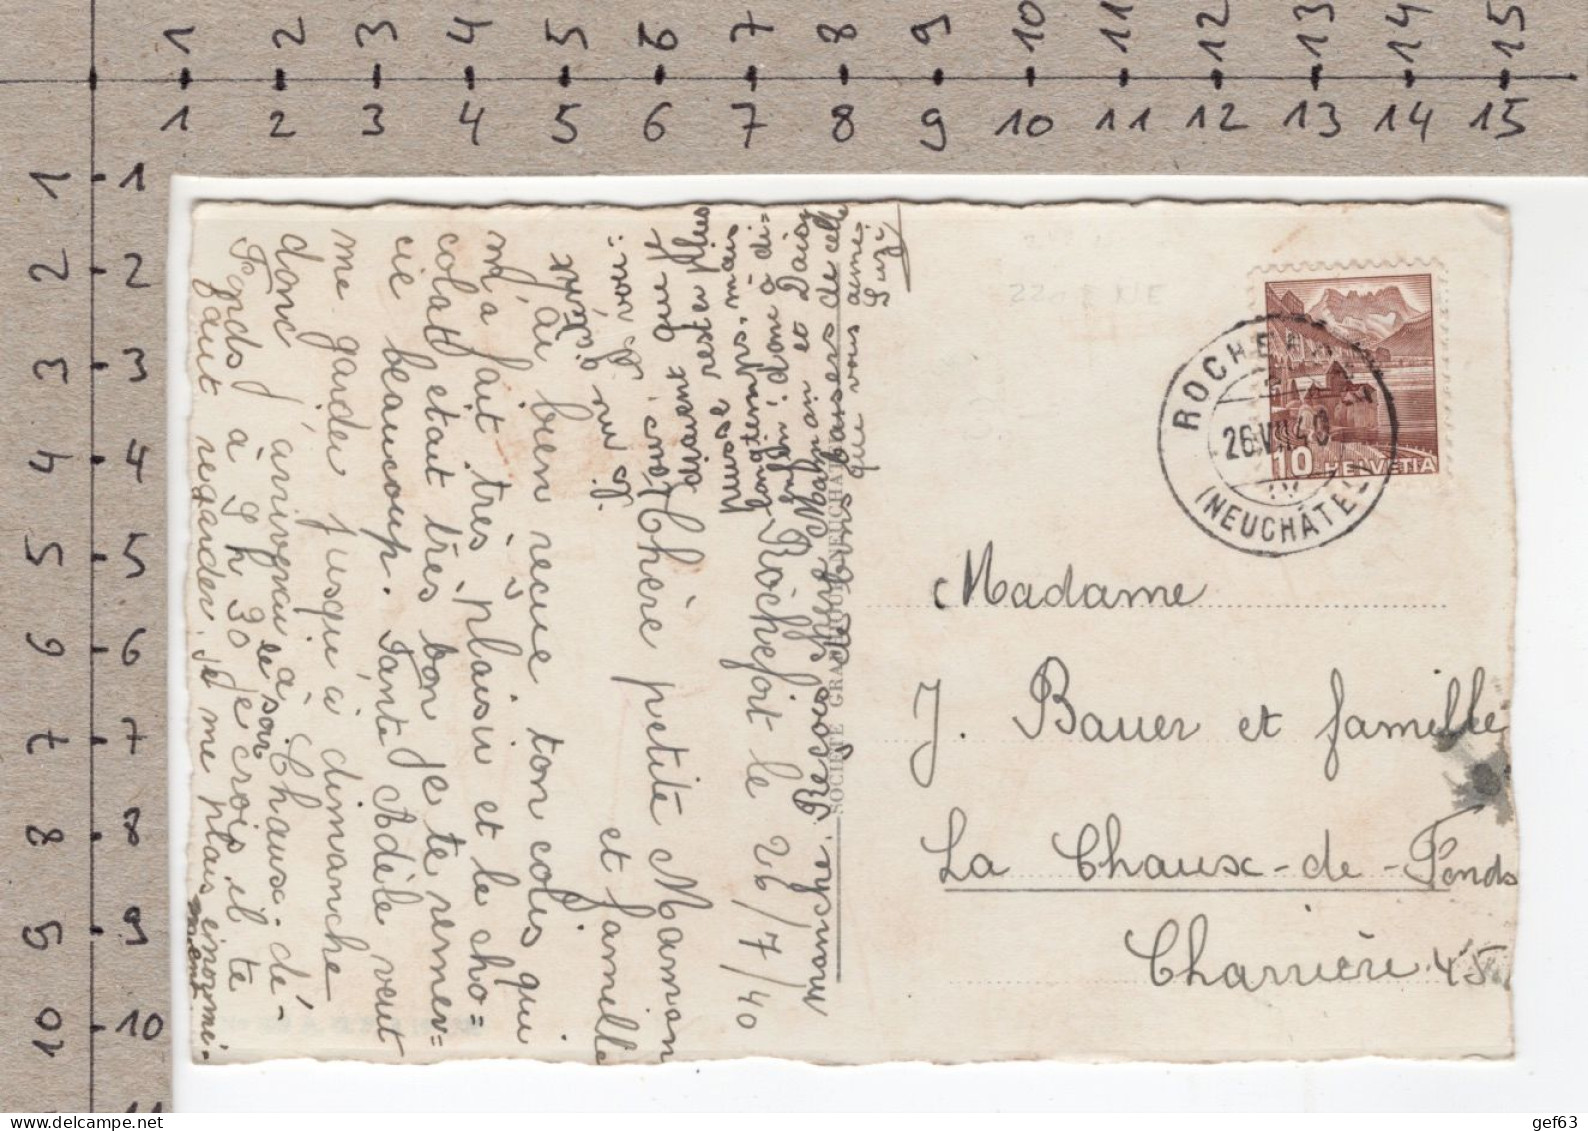 1 2 3 4 5 6 7 8 9 10 11 12 13 14 15
1 2 3 4 5 6 7 8 9 10 11 12 13 14 15
1 2 3 4 5 6 7 8 9 10
1 2 3 4 5 6 7 8 9 10 11
Rochefort le 26/7/40
Chère petite Maman
et famille
J'ai bien reçue ton colis qui
m'a fait très plaisir et le cho=
colat etait très bon je te remer-
cie beaucoup. Tante Adèle veut
me garder jusqu'à dimanche
donc j'arriverai à Chaux-de-
Fonds à 9 h 30 le soir je crois il te
faut regarder. Je me plais enormé-
ment
ici
Pour que je
puisse rester plus
longtemps, mais
enfin! donc à di-
manche. Reçois chère Maman et Daisy
de bons baisers de celle
que vous aime
Suzi
SOCIÉTÉ GRAPHIQUE NEUCHATEL
ROCHEFORT
26.VII.40
(NEUCHÂTEL)
10 HELVETIA
Madame
J. Bauer et famille
La Chaux-de-Fonds
Charrière 45
delcampe.net
gef63